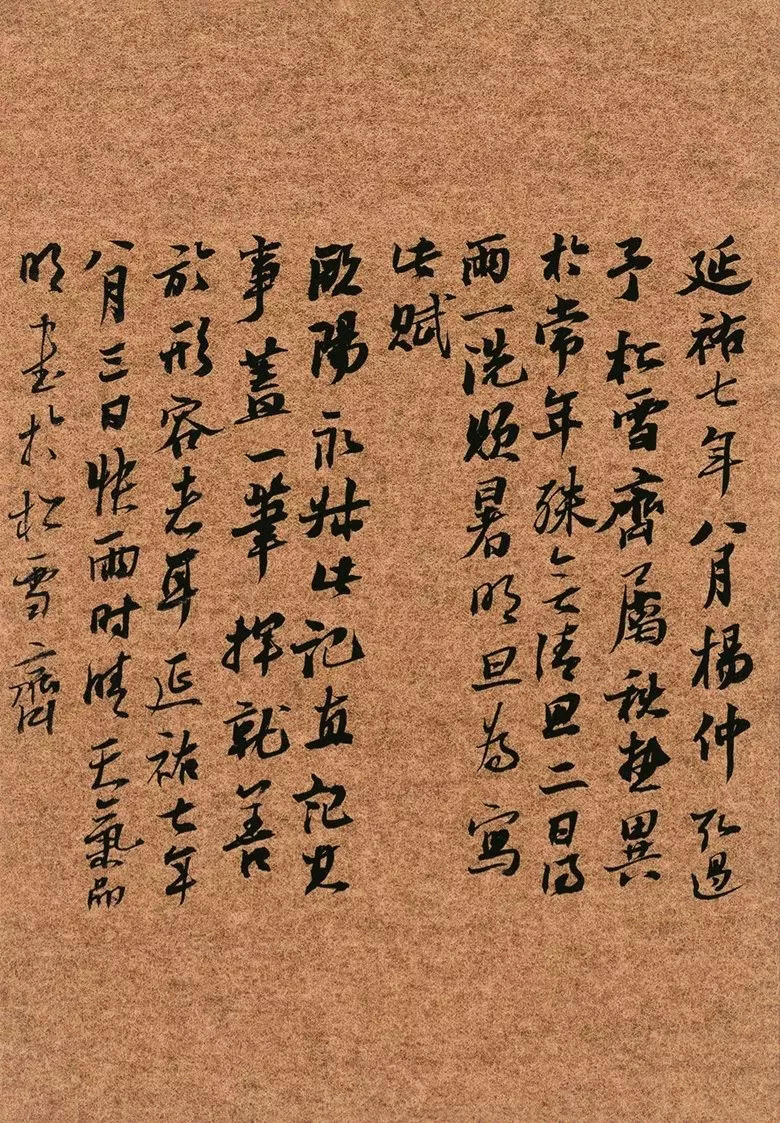 延祐七年八月楊仲弘過
予松雪齋屬秋熱異
於常年殊無清思二日得
雨一洗煩暑明旦為寫
此賦
歐陽永叔此記直記其
事蓋一筆揮就善
於形容者耳延祐七年
八月三日快雨時晴天氣明
書於松雪齋